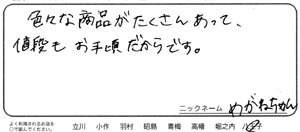 色々な商品がたくさんあって、
値段もお手頃だからです。
ニックネーム めがねちゃん
よく利用されるお店を
○で囲んでください。 立川 小作 羽村 昭島 青梅 高幡 堀之内 八王子